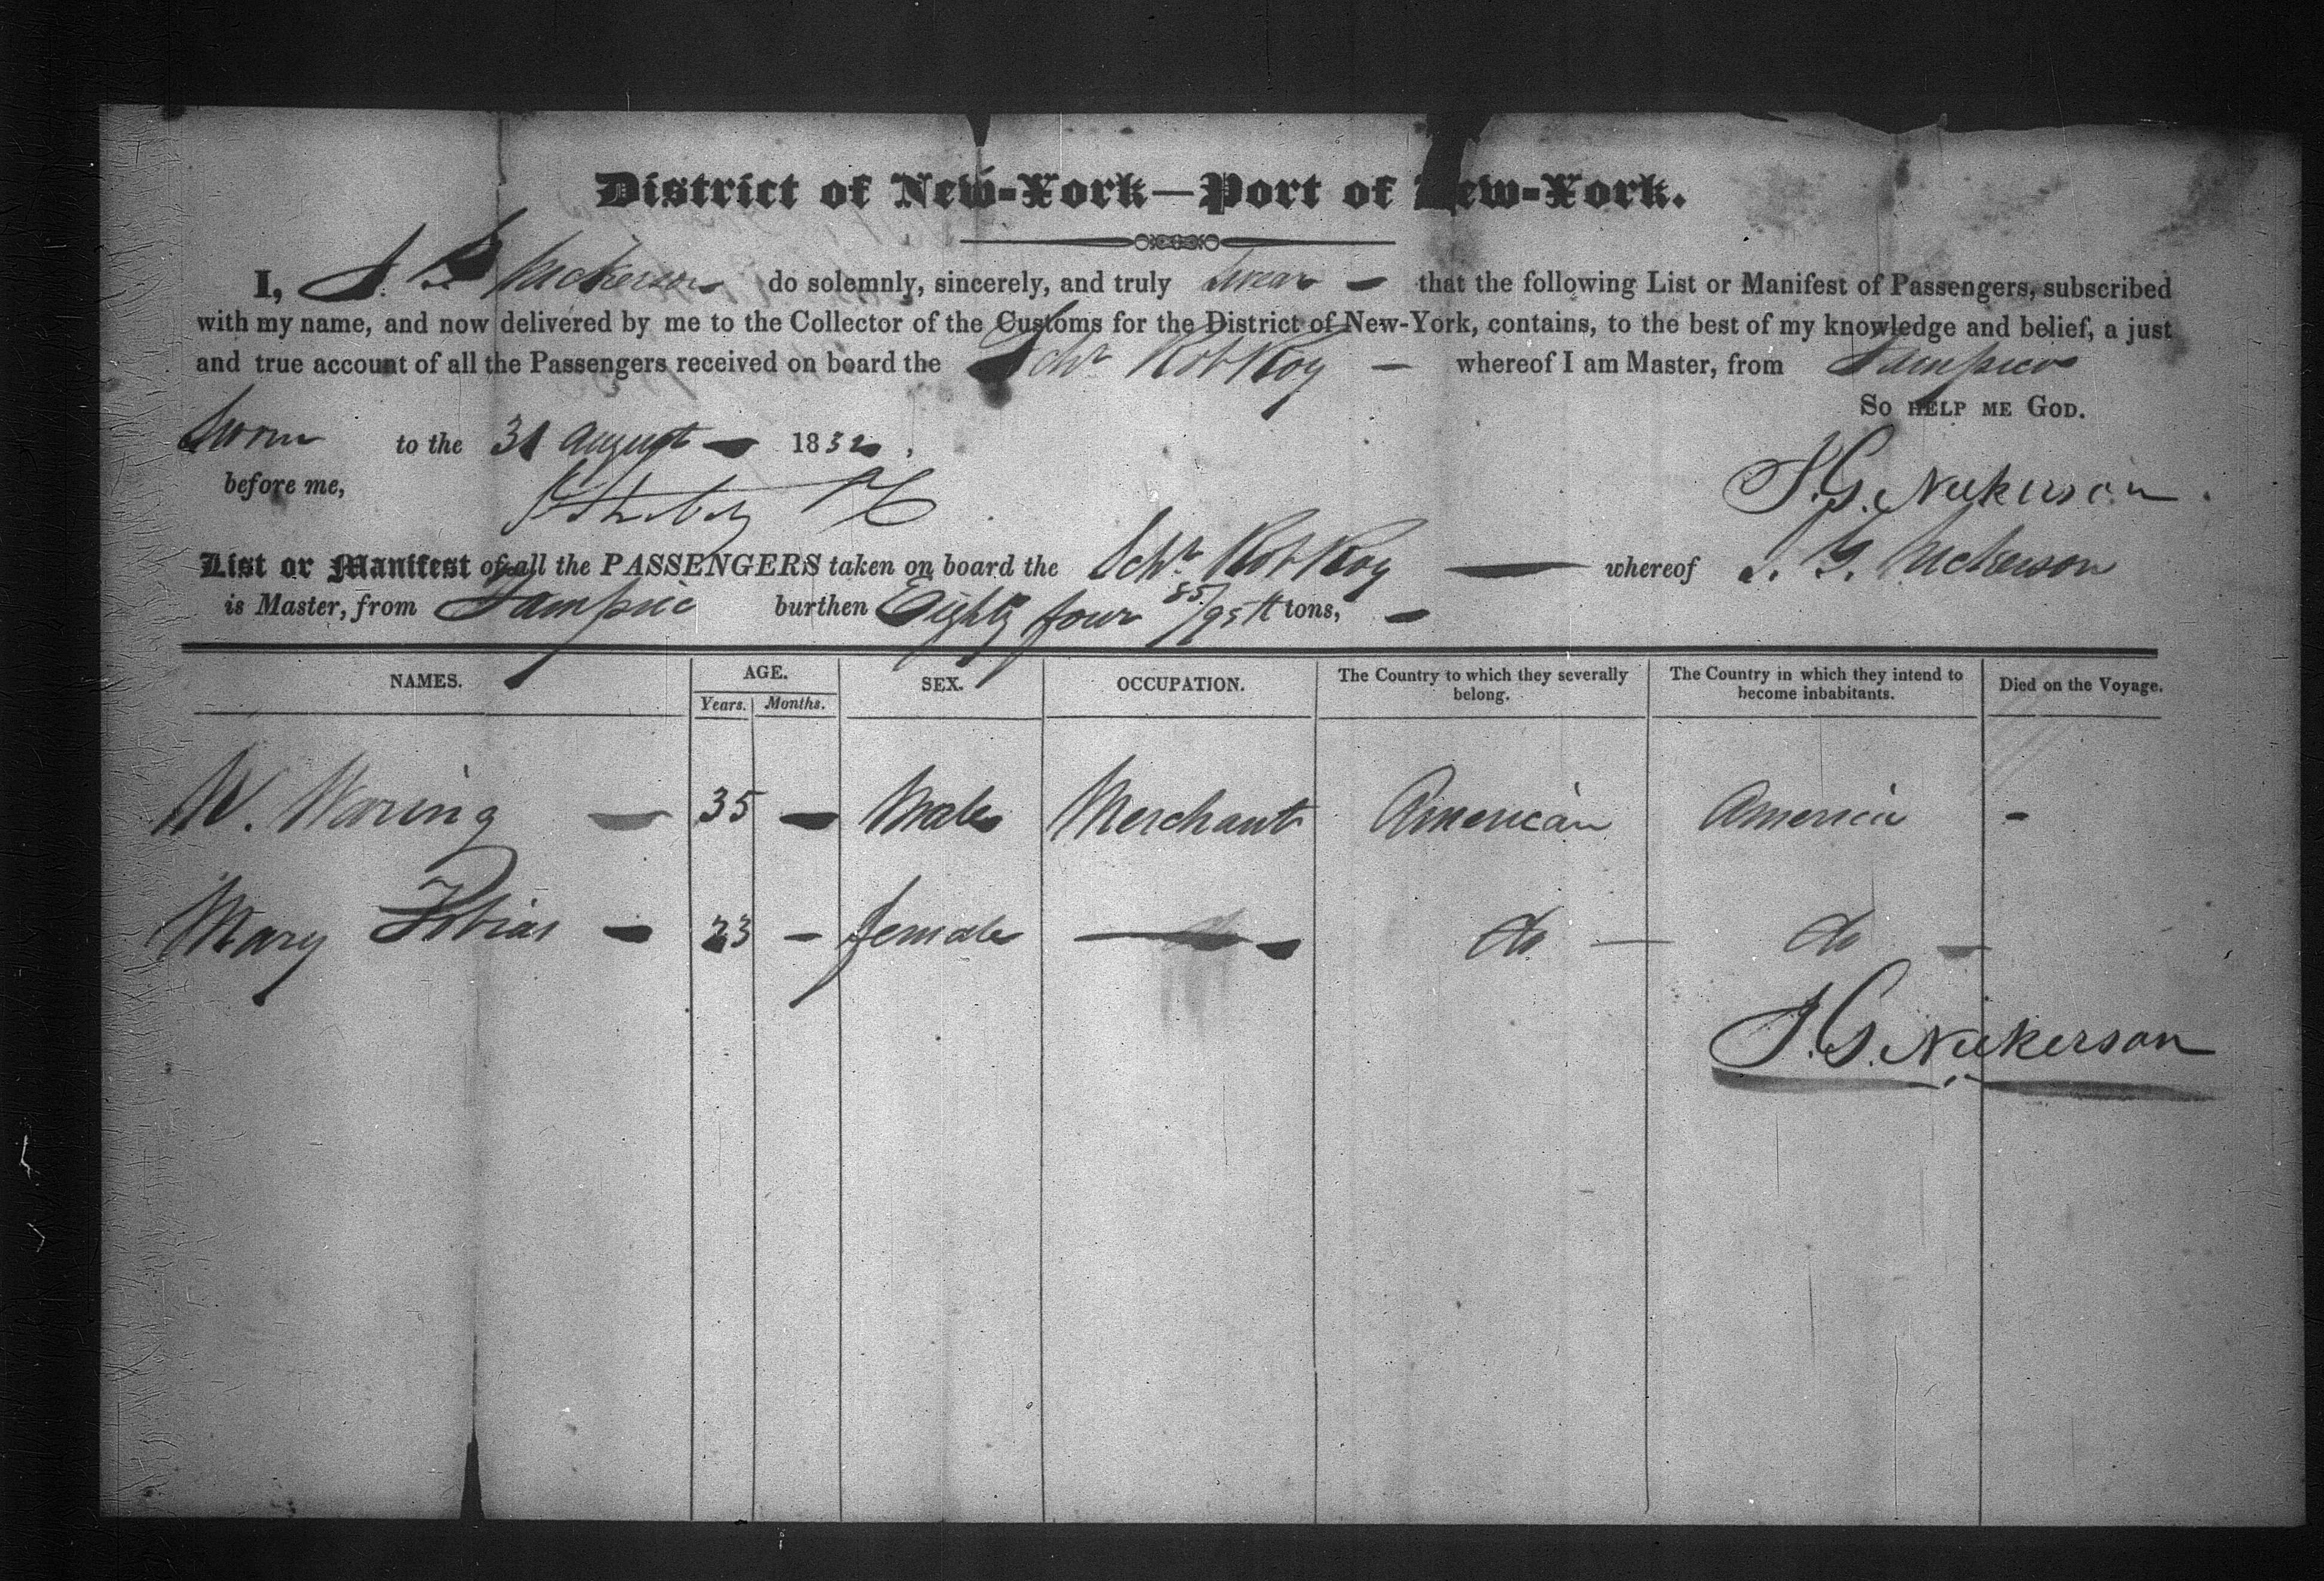 District of New-York—Port of New-York.
I, J. G. Nickerson do solemnly, sincerely, and truly swear — that the following List or Manifest of Passengers, subscribed
with my name, and now delivered by me to the Collector of the Customs for the District of New-York, contains, to the best of my knowledge and belief, a just
and true account of all the Passengers received on board the Schr Rob Roy — whereof I am Master, from Tampico
So help me God.
Sworn to the 31 August — 1832,
before me,
J. G. Nickerson
List or Manifest of all the PASSENGERS taken on board the Schr Rob Roy — whereof J. G. Nickerson
is Master, from Tampico burthen Eighty four 85/95th tons, —
NAMES. AGE. SEX. OCCUPATION. The Country to which they severally belong. The Country in which they intend to become inhabitants. Died on the Voyage.
Years. Months.
W. Waring — 35 — Male Merchant American America -
Mary Tobias — 23 — female — do — do —
J. G. Nickerson